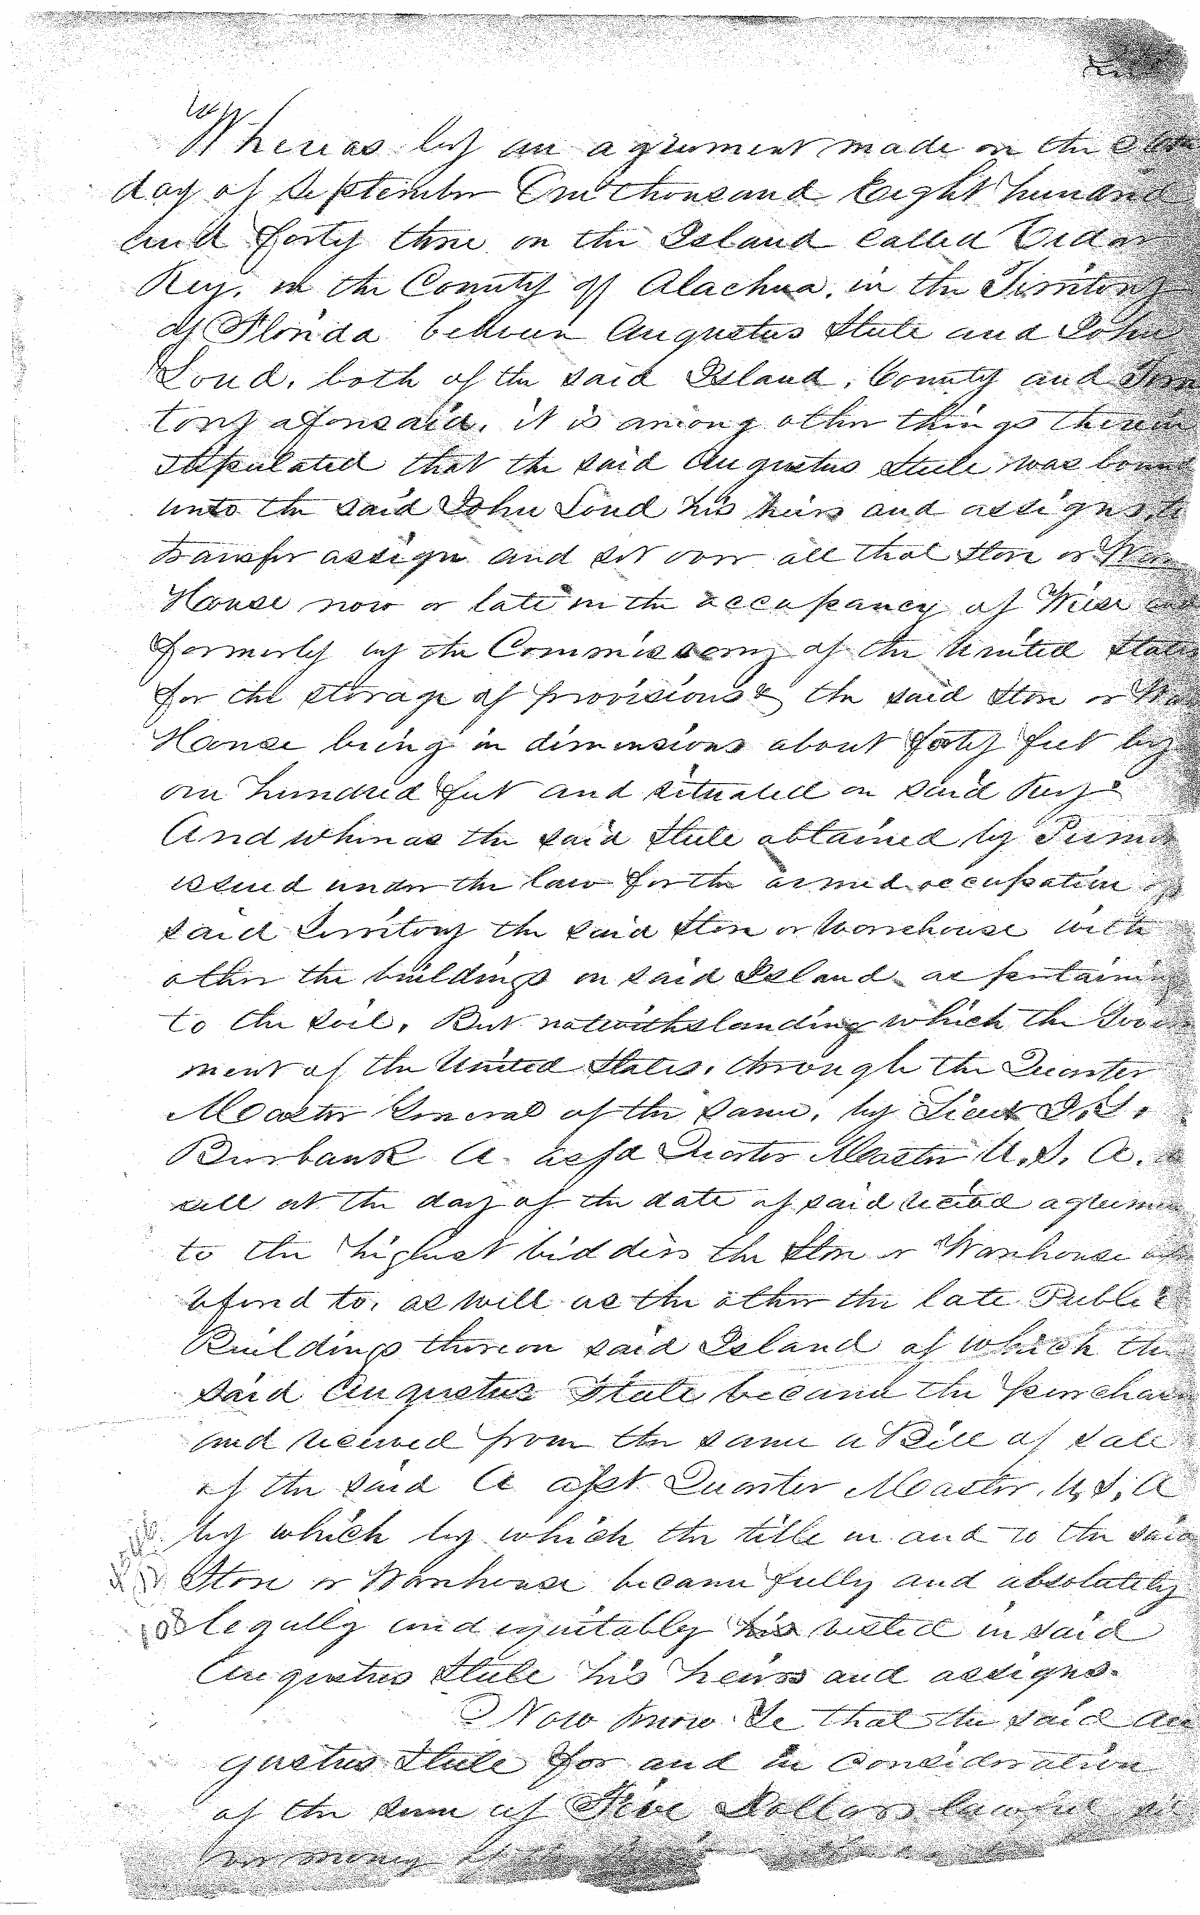 Whereas by an agreement made on the
day of September One thousand Eight hundred
and forty three on the Island called Cedar
Key, in the County of Alachua, in the Territory
of Florida between Augustus Steele and John
Loud, both of the said Island, County and Terri
tory aforesaid, it is among other things therein
stipulated that the said Augustus Steele was bound
unto the said John Loud his heirs and assigns, to
transfer assign and set over all that Store or Ware
House now or late in the occupancy of Weise and
formerly by the Commissary of the United States
for the storage of provisions & the said Store or Ware
House being in dimensions about forty feet by
one hundred feet and situated on said Key
And whereas the said Steele obtained by Permit
issued under the law for the armed occupation of
said Territory the said Store or Warehouse with
other the buildings on said Island as pertaining
to the soil, But notwithstanding which the Govern
ment of the United States, through the Quarter
Master General of the same, by Lieut
Burbank A. Quarter Master U. S. A.
sell at the day of the date of said recited agreement
to the highest bidders the Store or Warehouse
referd to, as well as the other the late Public
Buildings thereon said Island of which the
said Augustus Steele became the purchaser
and received from the same a Bill of Sale
of the said A asst Quarter Master, U, S, A
by which by which the title in and to the said
Store or Warehouse became fully and absolutely
108
legally and equitably his vested in said
Augustus Steele his heirs and assigns.
Now know Ye that the said Au
gustus Steele for and in consideration
of the sum of Five Dollars lawful sil
ver money